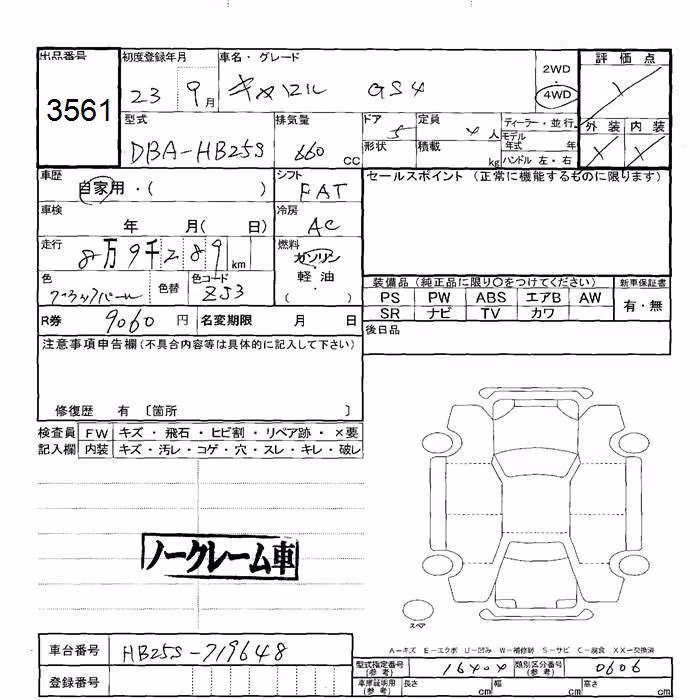 出品番号 初度登録年月 車名・グレード 評価点
3561 23 9月 キャロル GS4 2WD 4WD
型式 排気量 ドア 5 定員 4人 ディーラー・並行 外装 内装
DBA-HB25S 660 CC 形状 積載 kg モデル年式 年 ハンドル 左・右
車歴 シフト セールスポイント (正常に機能するものに限ります)
自家用・( ) FAT
車検 年 月( 日) 冷房 AC
走行 8万9千289km 燃料 ガソリン 軽油・( )
色 色替 色コード ZJ3 装備品 (純正品に限り〇をつけてください) 新車保証書
PS PW ABS エアB AW 有・無
SR ナビ TV カワ
R券 9060円 名変期限 月 日 後日品
注意事項申告欄(不具合内容等は具体的に記入して下さい)
修復歴 有 〔箇所 〕
検査員 FW キズ・飛石・ヒビ割・リペア跡・×要
記入欄 内装 キズ・汚レ・コゲ・穴・スレ・キレ・破レ
ノークレーム車
スペア
A-キズ E-エクボ U-凹み W-補修跡 S-サビ C-腐食 XX-交換済
車台番号 HB25S-719648 型式指定番号(参考) 16404 類別区分番号(参考) 0606
登録番号 車庫証明用(参考) 長さ cm 幅 cm 高さ cm